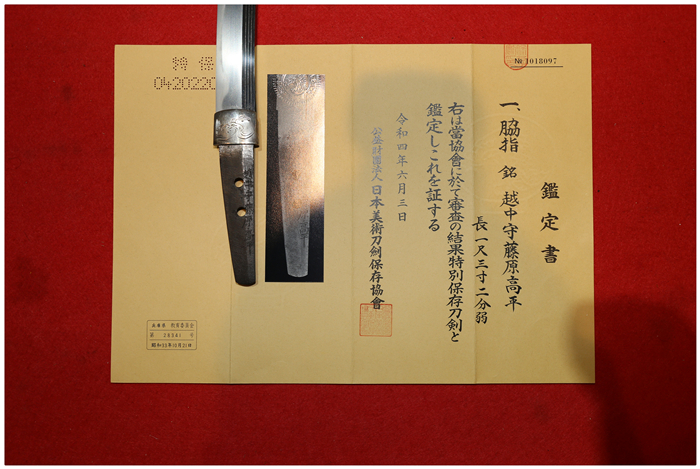 № 1018097
鑑定書
一、脇指 銘 越中守藤原高平
長一尺三寸二分弱
右は當協會に於て審査の結果特別保存刀剣と
鑑定しこれを証する
令和四年六月三日
公益財團法人日本美術刀劍保存協會
特 保
042022
兵庫県 教育委員会
第 28541 号